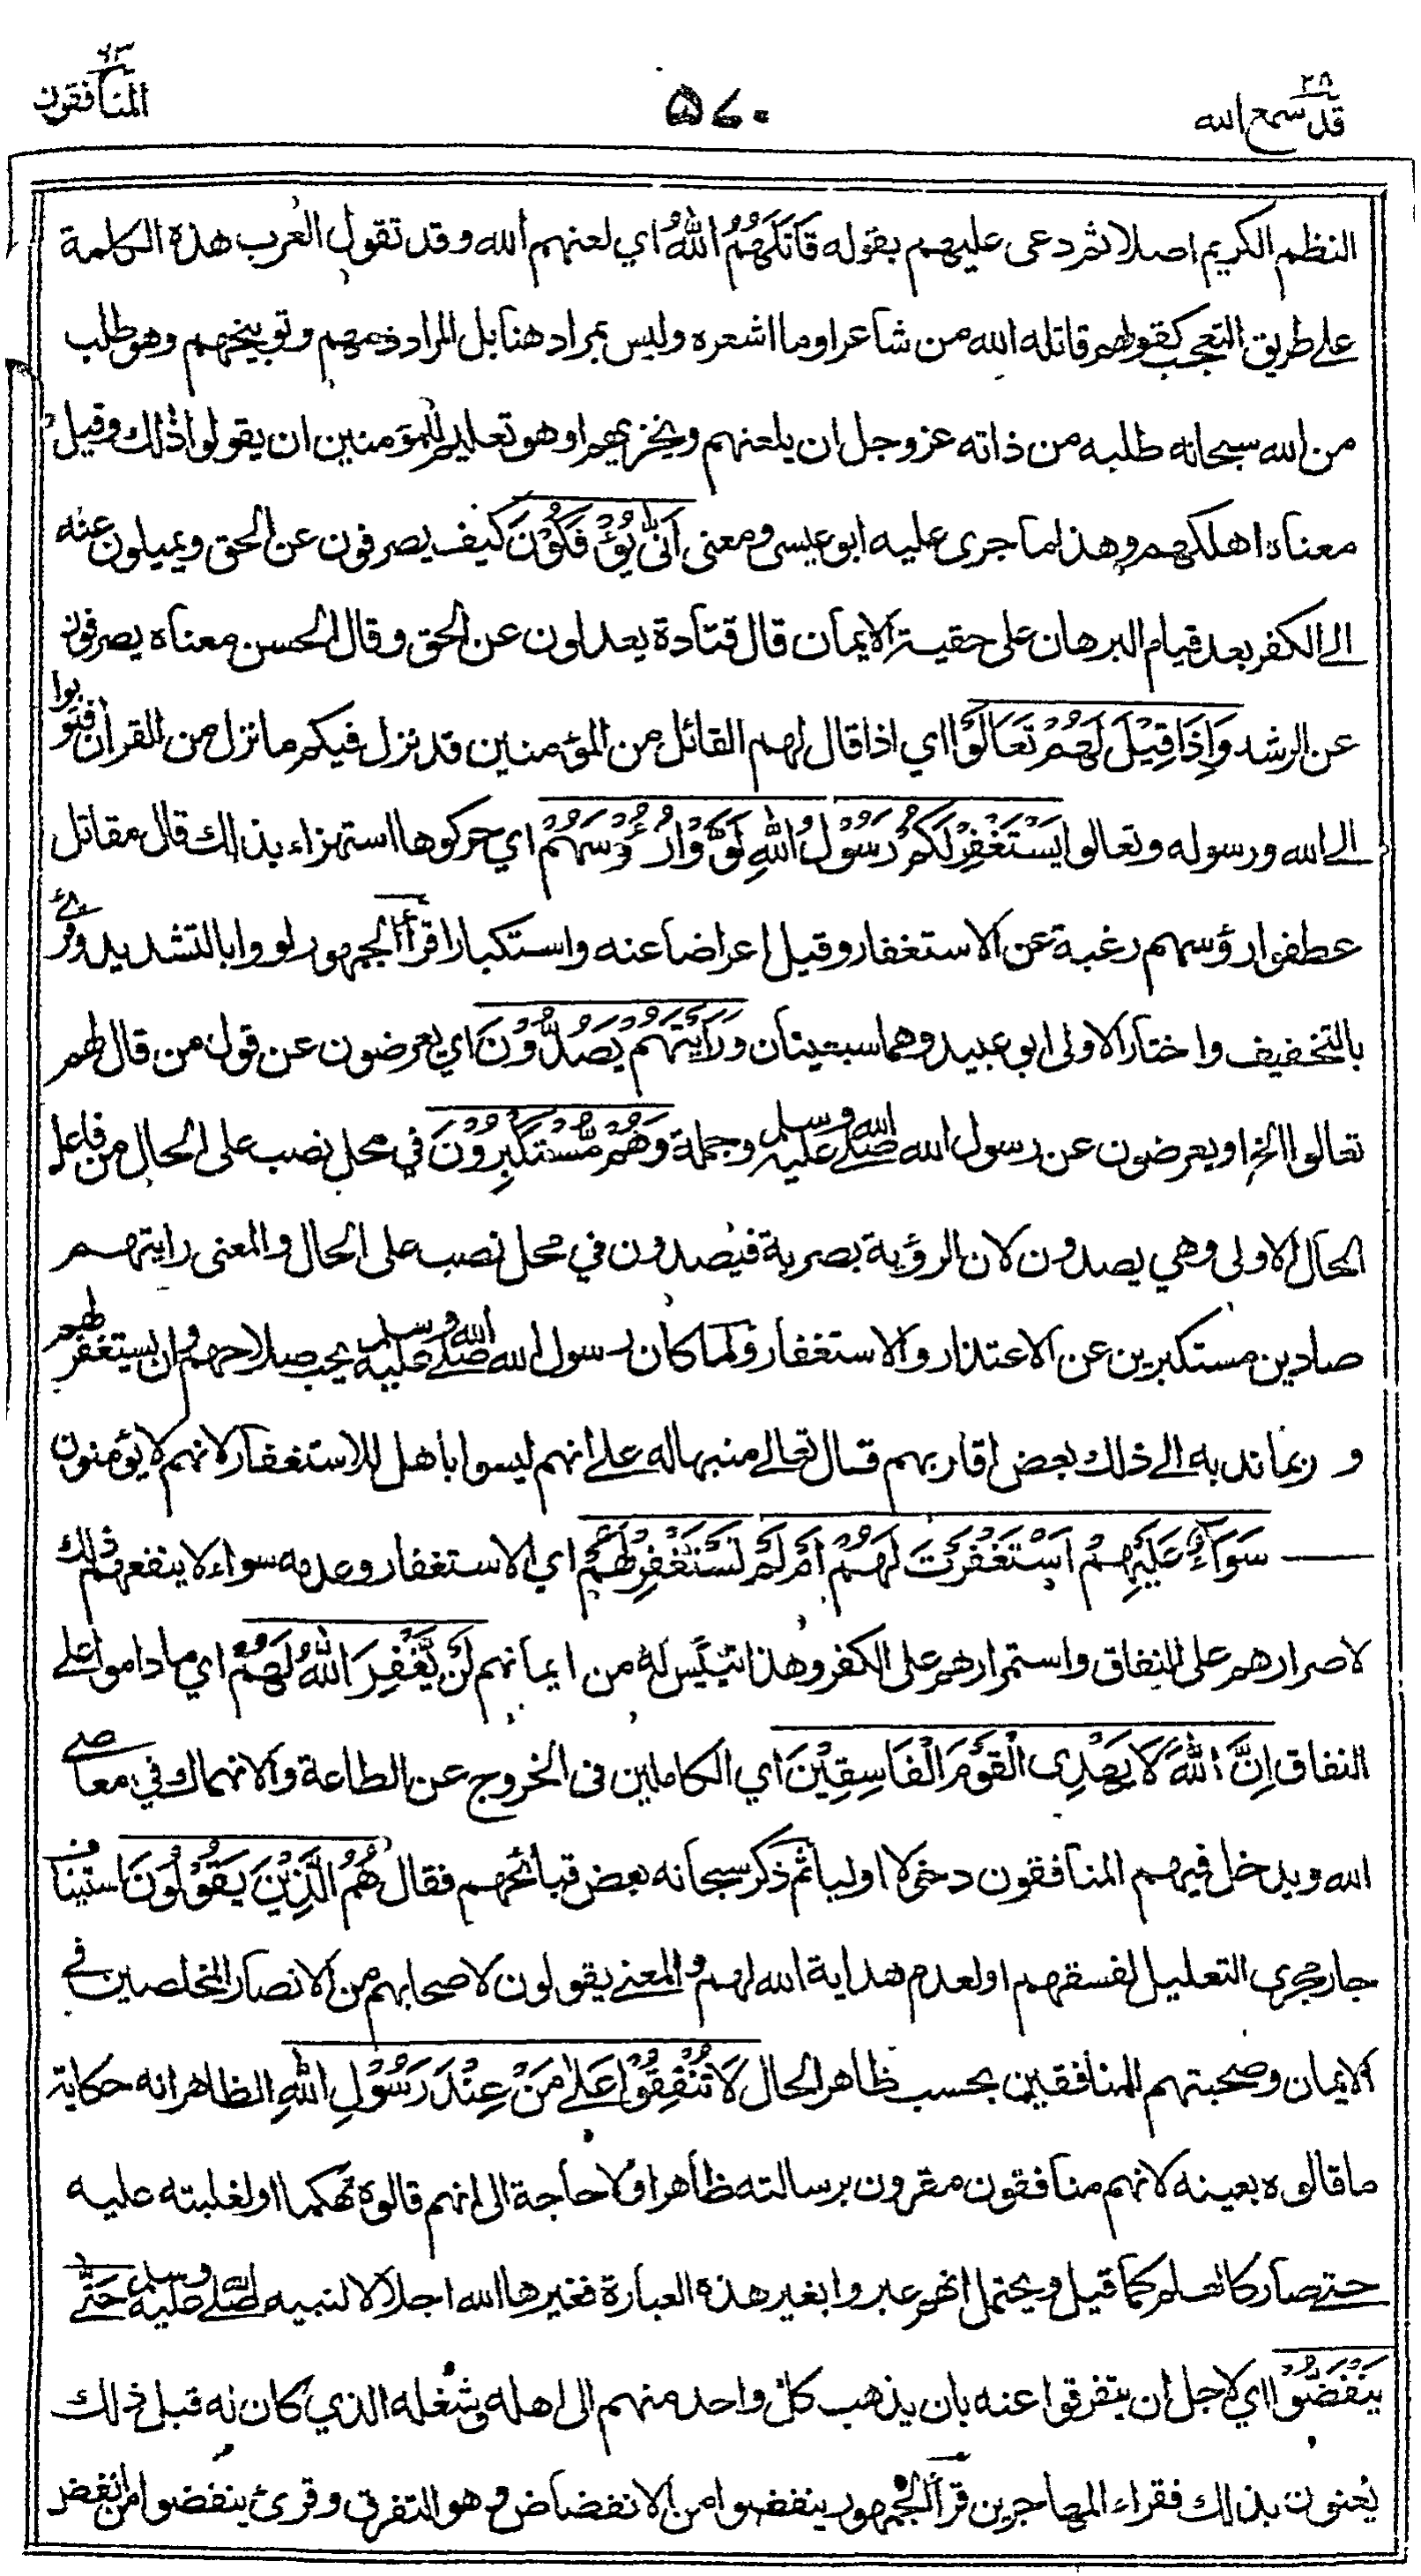 قد سمع الله ٢٨
٥٧٠
المنافقون ٦٣
النظم الكريم اصلا ثم دعى عليهم بقوله قَاتَلَهُمُ اللّٰهُ اي لعنهم الله وقد تقول العرب هذه الكلمة
على طريق التعجب كقولهم قاتله الله من شاعر او ما اشعره وليس بمراد هنا بل المراد ذمهم وتوبيخهم وهو طلب
من الله سبحانه طلبه من ذاته عز وجل ان يلعنهم ويخزيهم او هو تعليم للمؤمنين ان يقولوا ذلك وقيل
معناه اهلكهم وهذا ما جرى عليه ابو عيسى ومعنى اَنّٰى يُؤْفَكُوْنَ كيف يصرفون عن الحق ويميلون عنه
الى الكفر بعد قيام البرهان على حقية الايمان قال قتادة يعدلون عن الحق وقال الحسن معناه يصرفون
عن الرشد وَاِذَا قِيْلَ لَهُمْ تَعَالَوْا اي اذا قال لهم القائل من المؤمنين قد نزل فيكم ما نزل من القران فتوبوا
الى الله ورسوله وتعالوا يَسْتَغْفِرْ لَكُمْ رَسُوْلُ اللّٰهِ لَوَّوْا رُءُوْسَهُمْ اي حركوها استهزاء بذلك قال مقاتل
عطفوا رؤسهم رغبة عن الاستغفار وقيل اعراضا عنه واستكبارا قرأ الجمهور لووا بالتشديد وقرئ
بالتخفيف واختار الاولى ابو عبيد وهما سبعيتان وَرَاَيْتَهُمْ يَصُدُّوْنَ اي يعرضون عن قول من قال لهم
تعالوا الخ او يعرضون عن رسول الله صلى الله عليه وسلم وجملة وَهُمْ مُّسْتَكْبِرُوْنَ في محل نصب على الحال من فاعل
الحال الاولى وهي يصدون لان الرؤية بصرية فيصدون في محل نصب على الحال والمعنى رايتهم
صادين مستكبرين عن الاعتذار والاستغفار ولما كان رسول الله صلى الله عليه وسلم يحب صلاحهم وان يستغفر لهم
و ربما ندبه الى ذلك بعض اقاربهم قال تعالى منبها له على انهم ليسوا باهل للاستغفار لانهم لا يؤمنون
سَوَآءٌ عَلَيْهِمْ اَسْتَغْفَرْتَ لَهُمْ اَمْ لَمْ تَسْتَغْفِرْ لَهُمْ اي الاستغفار وعدمه سواء لا ينفعهم ذلك
لاصرارهم على النفاق واستمرارهم على الكفر وهذا تيئيس له من ايمانهم لَنْ يَّغْفِرَ اللّٰهُ لَهُمْ اي ما داموا على
النفاق اِنَّ اللّٰهَ لَا يَهْدِى الْقَوْمَ الْفَاسِقِيْنَ اي الكاملين فى الخروج عن الطاعة والانهماك في معاصي
الله ويدخل فيهم المنافقون دخولا اوليا ثم ذكر سبحانه بعض قبائحهم فقال هُمُ الَّذِيْنَ يَقُوْلُوْنَ استيناف
جار مجرى التعليل لفسقهم او لعدم هداية الله لهم والمعنى يقولون لاصحابهم من الانصار المخلصين في
الايمان وصحبتهم للمنافقين بحسب ظاهر الحال لَا تُنْفِقُوْا عَلٰى مَنْ عِنْدَ رَسُوْلِ اللّٰهِ الظاهر انه حكاية
ما قالوه بعينه لانهم منافقون مقرون برسالته ظاهرا ولا حاجة الى انهم قالوه تهكما او لغلبته عليه
حتى صار كالعلم كما قيل ويحتمل انهم عبروا بغير هذه العبارة فغيرها الله اجلالا لنبيه صلى الله عليه وسلم حَتّٰى
يَنْفَضُّوْا اي لاجل ان يتفرقوا عنه بان يذهب كل واحد منهم الى اهله وشغله الذي كان له قبل ذلك
يعنون بذلك فقراء المهاجرين قرأ الجمهور ينفضوا من الانفضاض وهو التفرق وقرئ ينفضوا من انفض